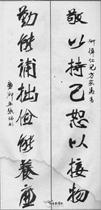 敬以持己恕以接物
勤能補拙儉能養廉